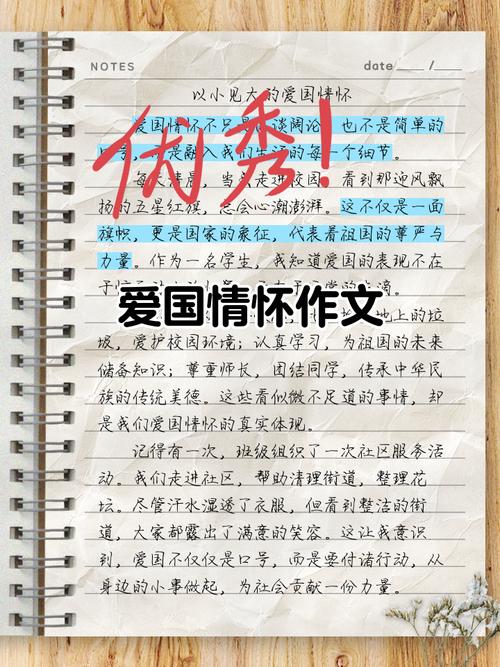 NOTES
date ___ / ___
以小见大的爱国情怀
优秀!
爱国情怀不只是 谈阔论，也不是简单的
口号， 是融入我们生活的每一个细节。
每天清晨，当 走进校园，看到那迎风飘
扬的五星红旗，总会心潮澎湃。这不仅是一面
旗帜，更是国家的象征，代表着祖国的尊严与
力量。作为一名学生，我知道爱国的表现不在
于
爱国情怀作文
地上的垃
圾，爱护校园环境；认真学习，为祖国的未来
储备知识；尊重师长，团结同学，传承中华民
族的传统美德。这些看似微不足道的事情，却
是我们爱国情怀的真实体现。
记得有一次，班级组织了一次社区服务活
动。我们走进社区，帮助清理街道，整理花
坛。尽管汗水湿透了衣服，但看到整洁的街
道，大家都露出了满意的笑容。这让我意识
到，爱国不仅仅是口号，而是要付诸行动，从
身边的小事做起，为社会贡献一份力量。